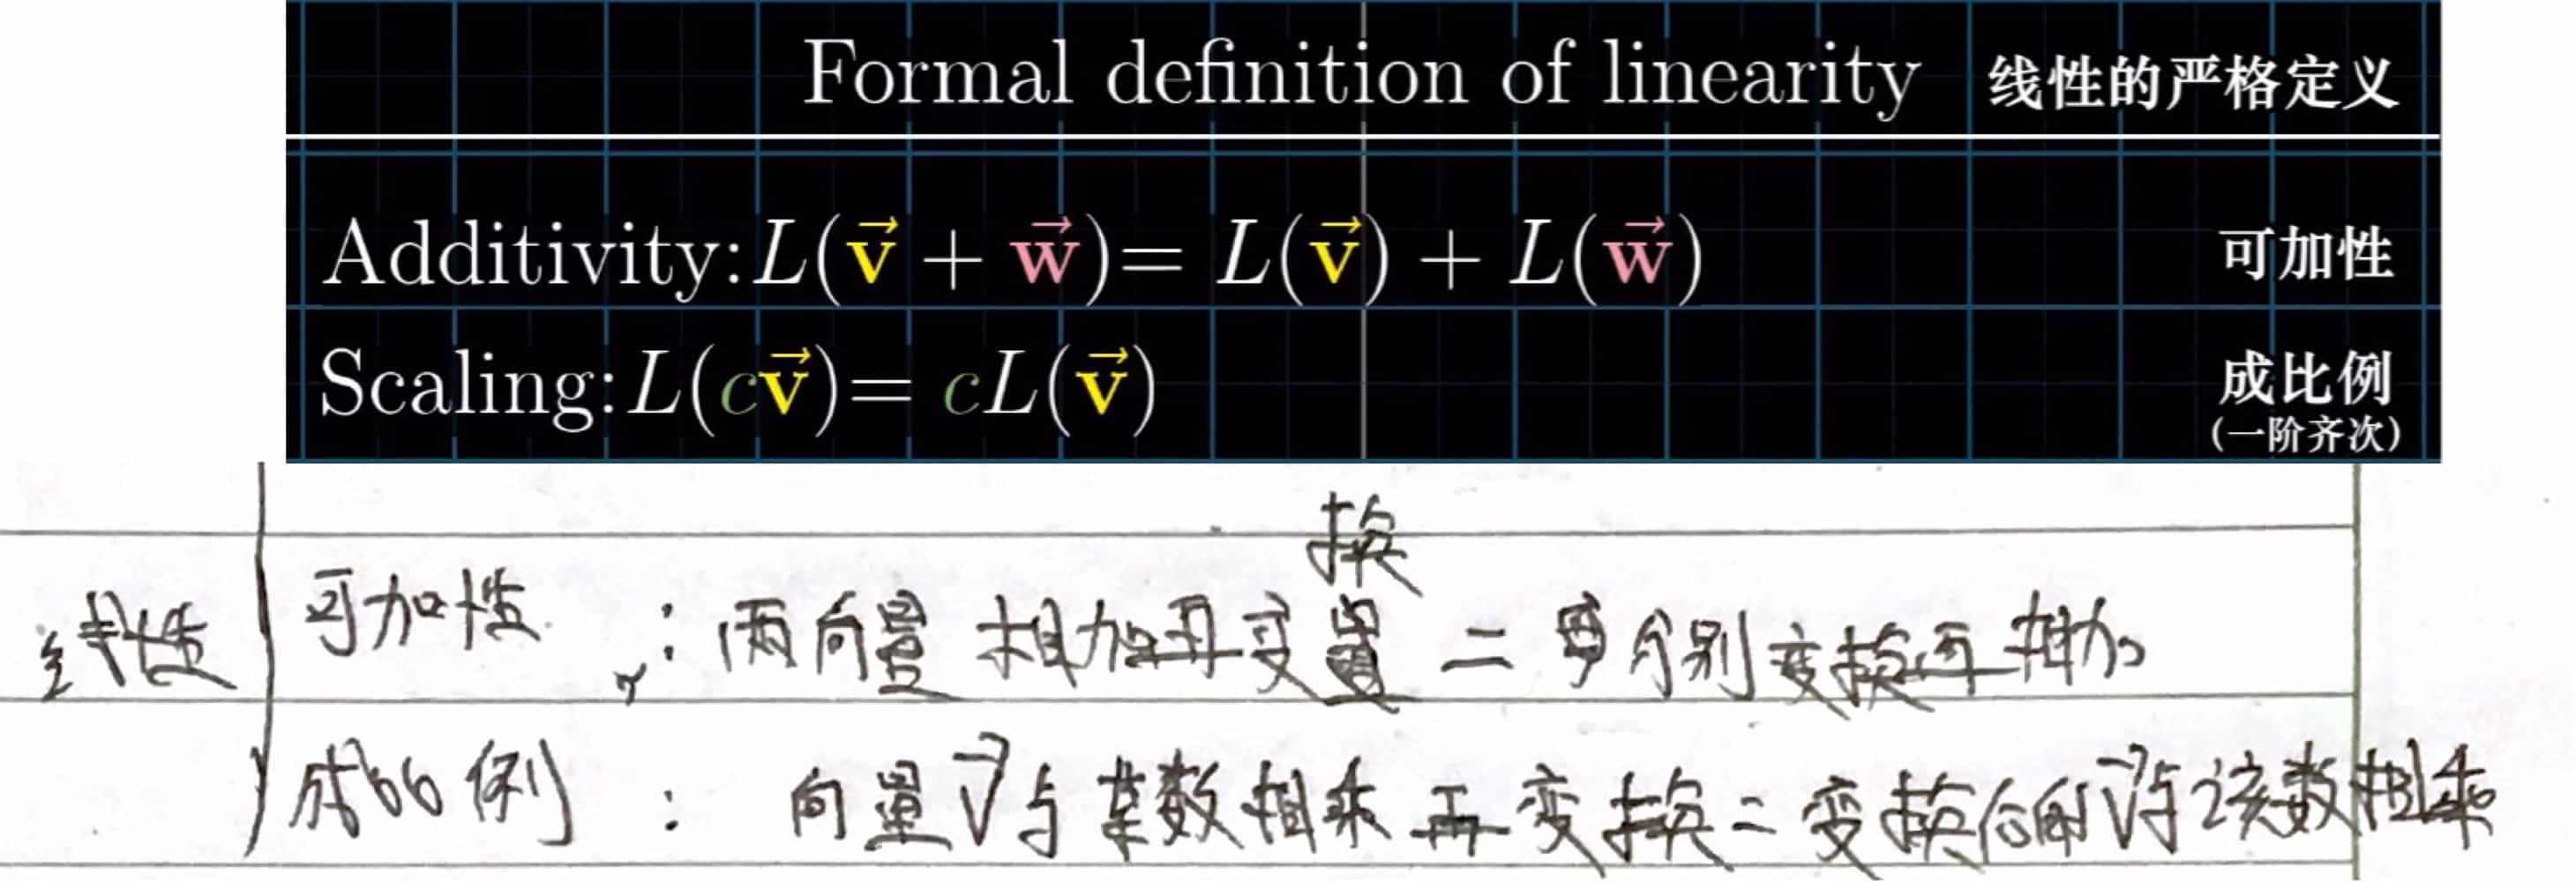 Formal definition of linearity 线性的严格定义
Additivity: L(v⃗ + w⃗) = L(v⃗) + L(w⃗) 可加性
Scaling: L(cv⃗) = cL(v⃗) 成比例
(一阶齐次)
换
线性 可加性 : 两向量 相加再变 = 分别变换再相加
成比例 : 向量 v⃗ 与某数相乘再变换 = 变换后的 v⃗ 与该数相乘